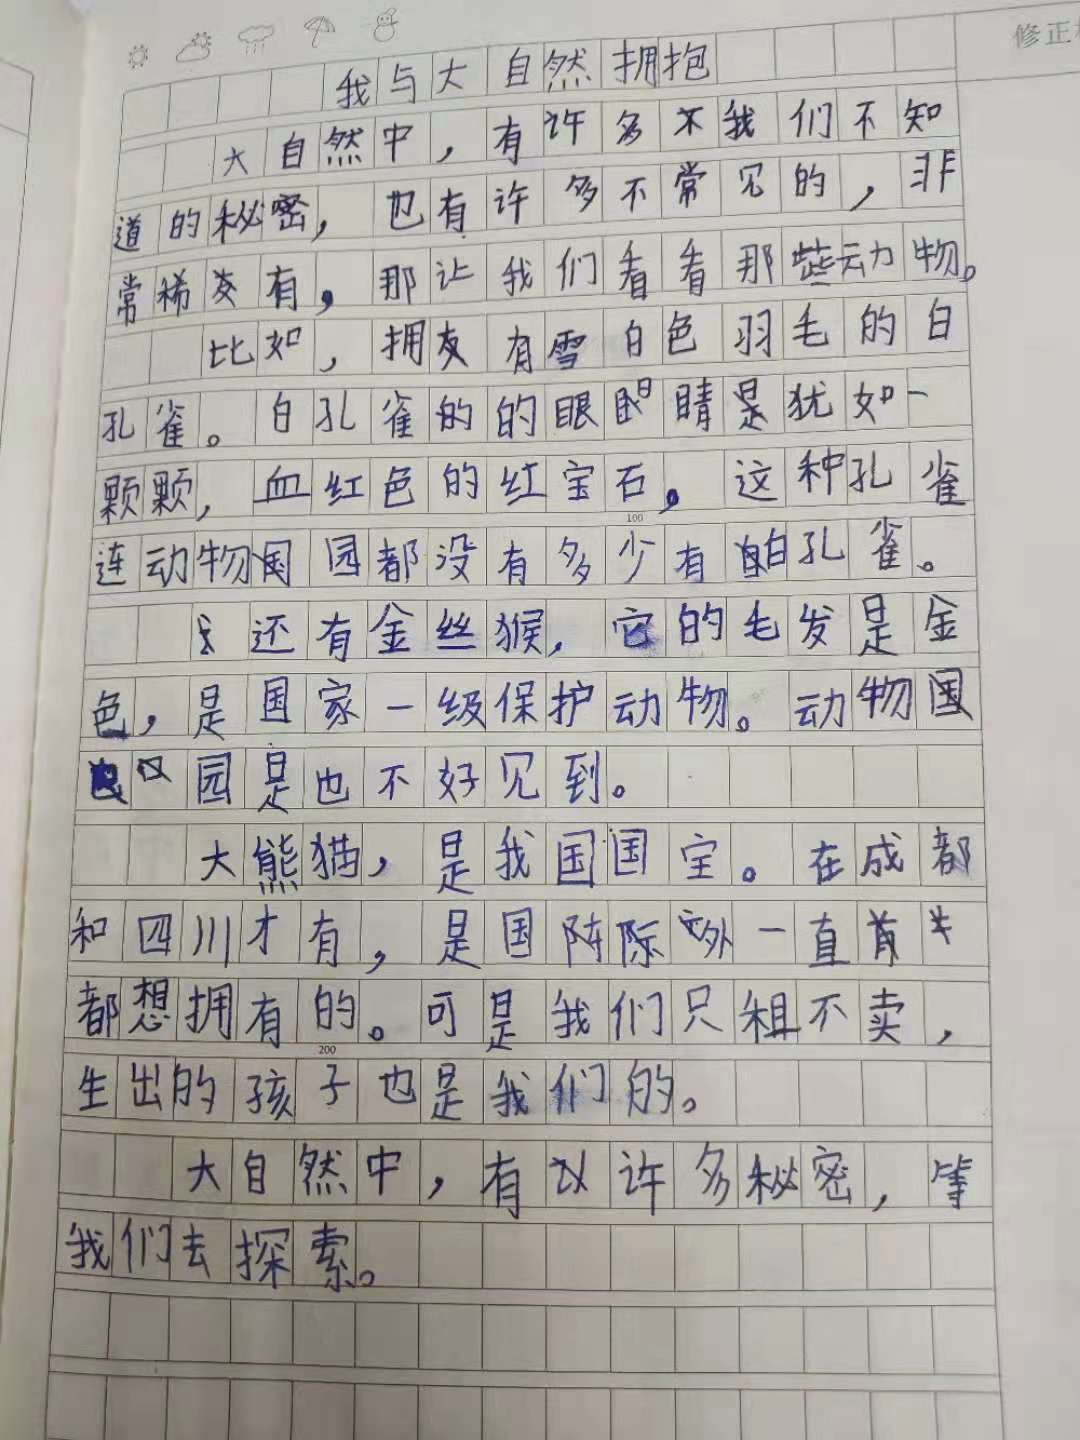 修正
我与大自然拥抱
大自然中，有许多不我们不知
道的秘密，也有许多不常见的，非
常稀有，那让我们看看那些动物。
比如，拥有雪白色羽毛的白
孔雀。白孔雀的的眼睛是犹如一
颗颗，血红色的红宝石，这种孔雀
100
连动物园都没有多少有白孔雀。
还有金丝猴，它的毛发是金
色，是国家一级保护动物。动物国
园是也不好见到。
大熊猫，是我国国宝。在成都
和四川才有，是国际外一直
都想拥有的。可是我们只租不卖，
200
生出的孩子也是我们的。
大自然中，有许多秘密，等
我们去探索。